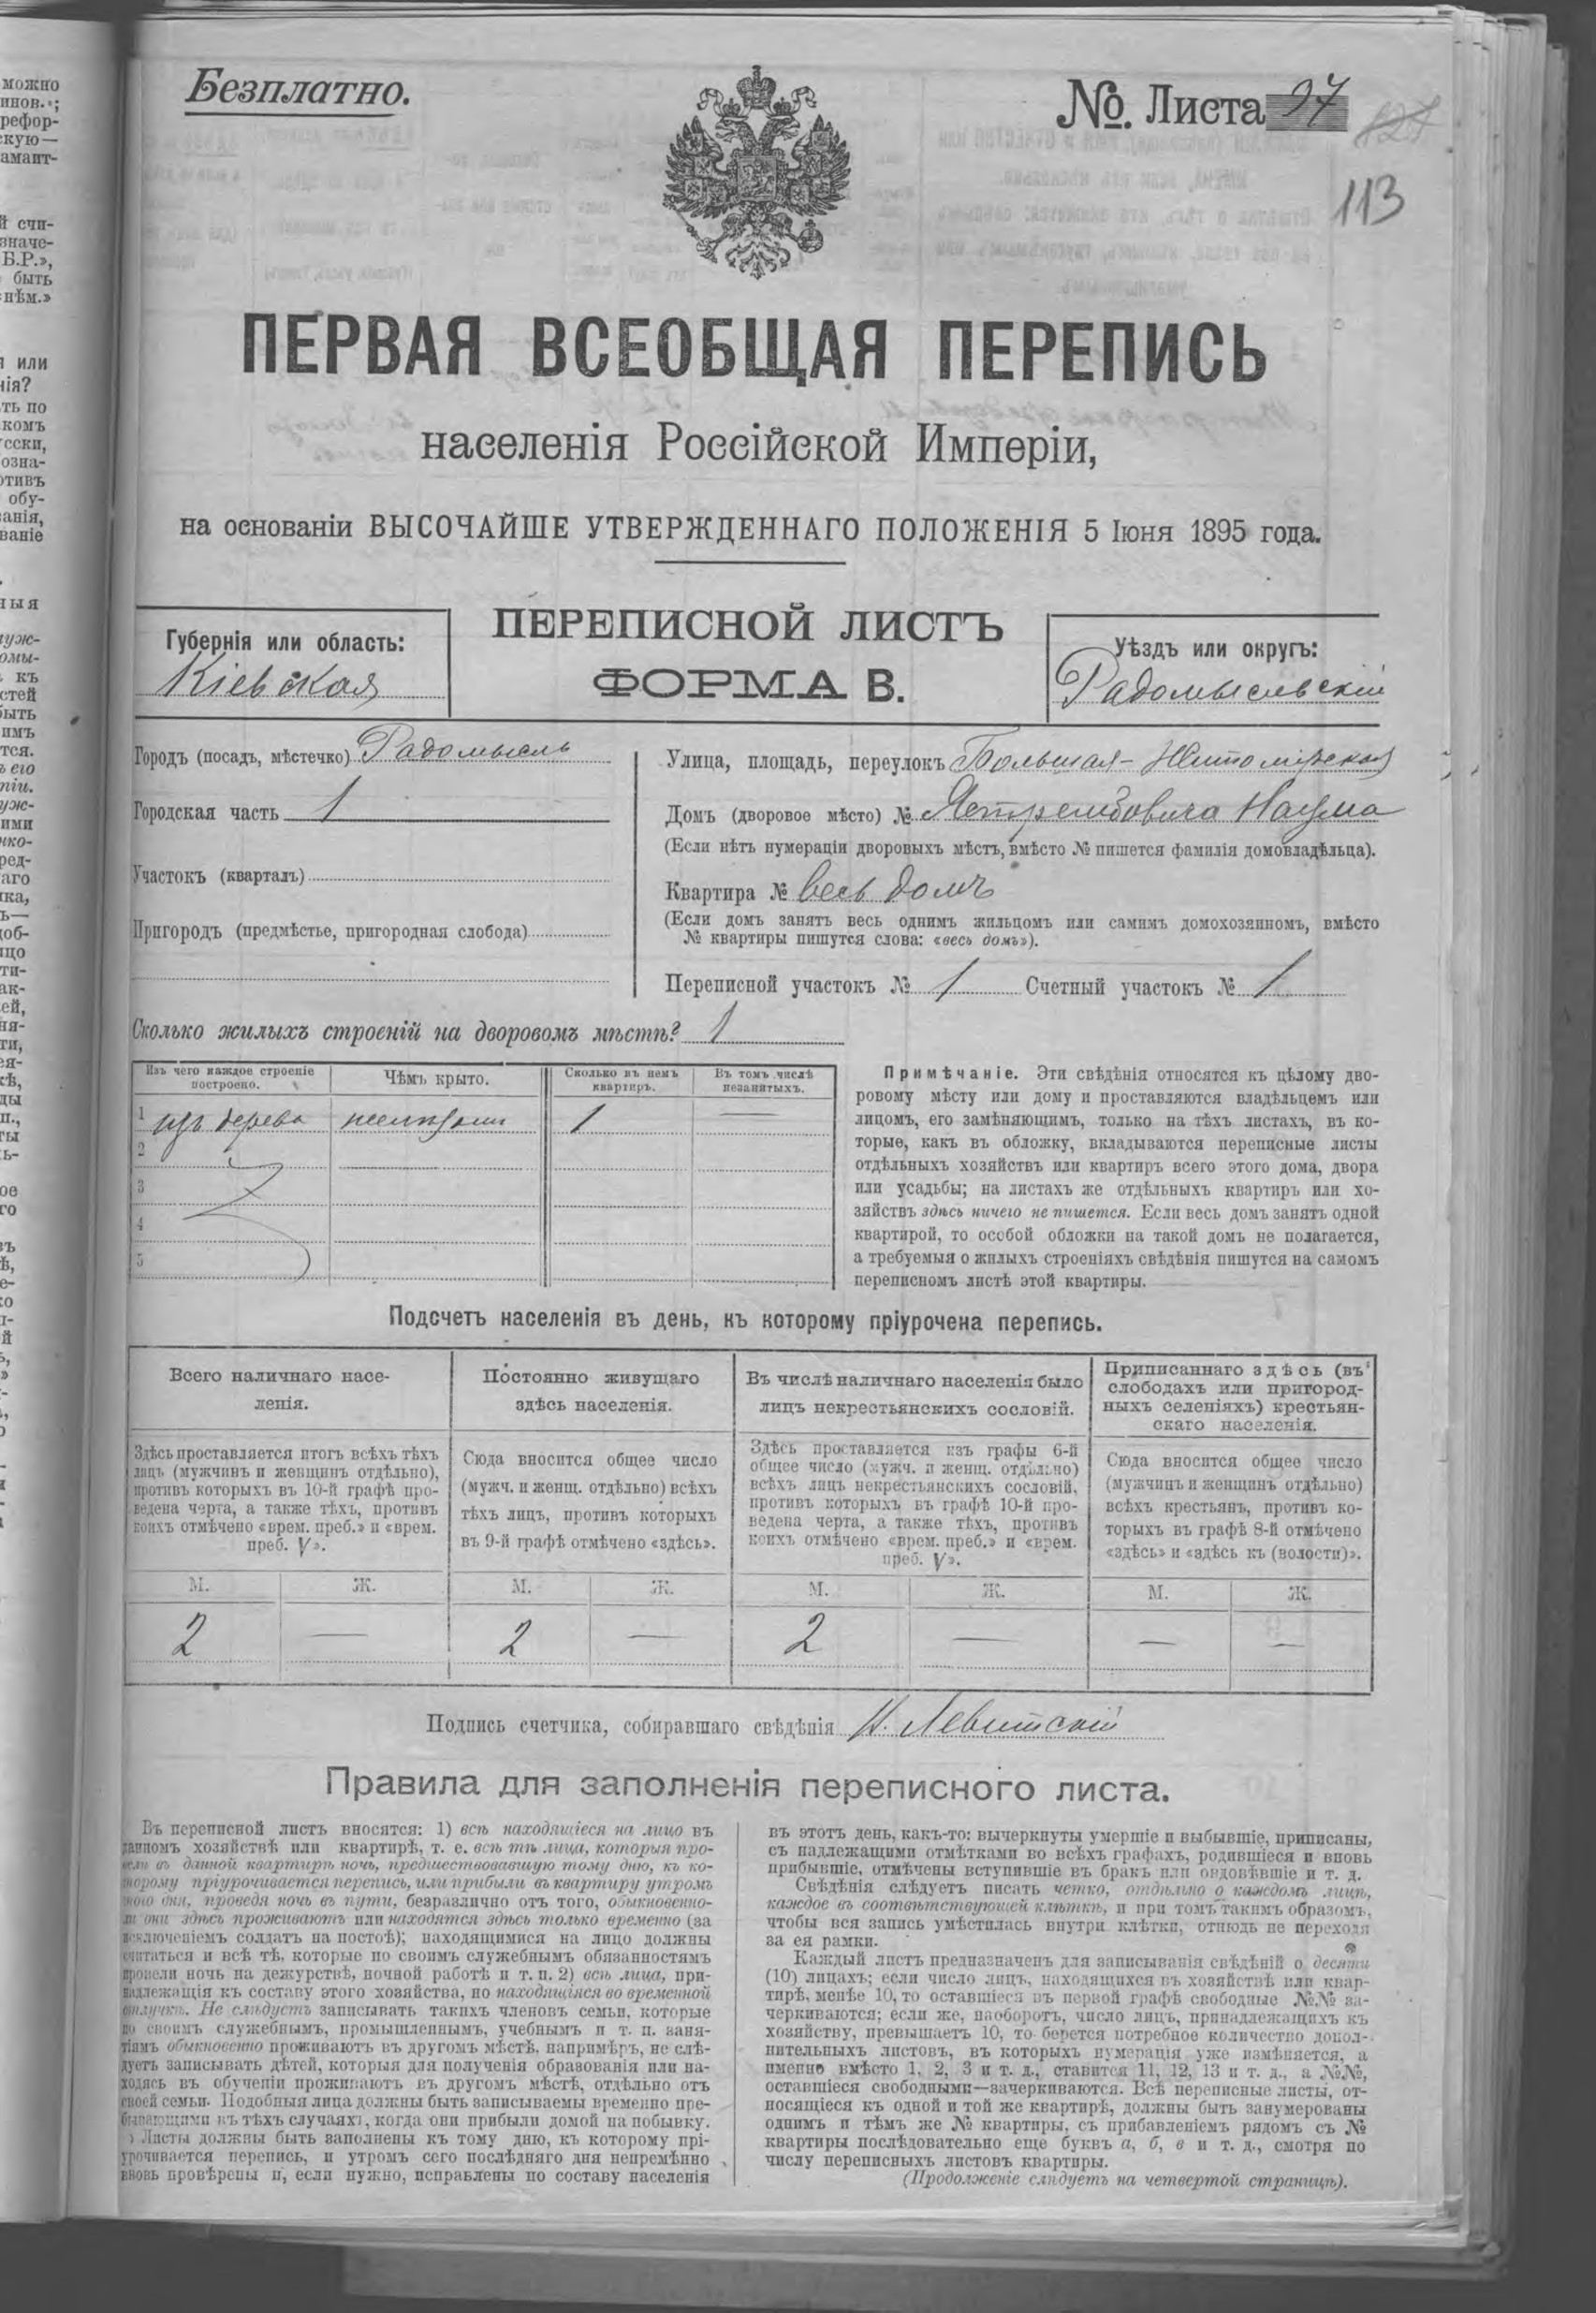 Безплатно.
№. Листа 97
127
113
ПЕРВАЯ ВСЕОБЩАЯ ПЕРЕПИСЬ
населенія Россійской Имперіи,
на основаніи ВЫСОЧАЙШЕ УТВЕРЖДЕННАГО ПОЛОЖЕНІЯ 5 Іюня 1895 года.
Губернія или область:
Кіевская
ПЕРЕПИСНОЙ ЛИСТЪ
ФОРМА В.
Уѣздъ или округъ:
Радомысльскій
Городъ (посадъ, мѣстечко) Радомысль
Городская часть 1
Участокъ (кварталъ)
Пригородъ (предмѣстье, пригородная слобода)
Улица, площадь, переулокъ Большая-Житомірская
Домъ (дворовое мѣсто) № Ястрембовича Наума
(Если нѣтъ нумераціи дворовыхъ мѣстъ, вмѣсто № пишется фамилія домовладѣльца).
Квартира № весь домъ
(Если домъ занятъ весь однимъ жильцомъ или самимъ домохозяиномъ, вмѣсто
№ квартиры пишутся слова: «весь домъ»).
Переписной участокъ № 1 Счетный участокъ № 1
Сколько жилыхъ строеній на дворовомъ мѣстѣ? 1
Изъ чего каждое строеніе
построено.
Чѣмъ крыто.
Сколько въ немъ
квартиръ.
Въ томъ числѣ
незанятыхъ.
1 изъ дерева 1 —
2
3
4
5
Примѣчаніе. Эти свѣдѣнія относятся къ цѣлому дво-
ровому мѣсту или дому и проставляются владѣльцемъ или
лицомъ, его замѣняющимъ, только на тѣхъ листахъ, въ ко-
торые, какъ въ обложку, вкладываются переписные листы
отдѣльныхъ хозяйствъ или квартиръ всего этого дома, двора
или усадьбы; на листахъ же отдѣльныхъ квартиръ или хо-
зяйствъ здѣсь ничего не пишется. Если весь домъ занятъ одной
квартирой, то особой обложки на такой домъ не полагается,
а требуемыя о жилыхъ строеніяхъ свѣдѣнія пишутся на самомъ
переписномъ листѣ этой квартиры.
Подсчетъ населенія въ день, къ которому пріурочена перепись.
Всего наличнаго насе-
ленія.
Постоянно живущаго
здѣсь населенія.
Въ числѣ наличнаго населенія было
лицъ некрестьянскихъ сословій.
Приписаннаго здѣсь (въ
слободахъ или пригород-
ныхъ селеніяхъ) крестьян-
скаго населенія.
Здѣсь проставляется итогъ всѣхъ тѣхъ
лицъ (мужчинъ и женщинъ отдѣльно),
противъ которыхъ въ 10-й графѣ про-
ведена черта, а также тѣхъ, противъ
коихъ отмѣчено «врем. преб.» и «врем.
преб. V».
Сюда вносится общее число
(мужч. и женщ. отдѣльно) всѣхъ
тѣхъ лицъ, противъ которыхъ
въ 9-й графѣ отмѣчено «здѣсь».
Здѣсь проставляется изъ графы 6-й
общее число (мужч. и женщ. отдѣльно)
всѣхъ лицъ некрестьянскихъ сословій,
противъ которыхъ въ графѣ 10-й про-
ведена черта, а также тѣхъ, противъ
коихъ отмѣчено «врем. преб.» и «врем.
преб. V».
Сюда вносится общее число
(мужчинъ и женщинъ отдѣльно)
всѣхъ крестьянъ, противъ ко-
торыхъ въ графѣ 8-й отмѣчено
«здѣсь» и «здѣсь къ (волости)».
М. Ж. М. Ж. М. Ж. М. Ж.
2 — 2 — 2 — — —
Подпись счетчика, собиравшаго свѣдѣнія Н. Левитскій
Правила для заполненія переписного листа.
Въ переписной листъ вносятся: 1) всѣ находящіеся на лицо въ
данномъ хозяйствѣ или квартирѣ, т. е. всѣ тѣ лица, которыя про-
вели въ данной квартирѣ ночь, предшествовавшую тому дню, къ ко-
торому пріурочивается перепись, или прибыли въ квартиру утромъ
этого дня, проведя ночь въ пути, безразлично отъ того, обыкновенно-
ли они здѣсь проживаютъ или находятся здѣсь только временно (за
исключеніемъ солдатъ на постоѣ); находящимися на лицо должны
считаться и всѣ тѣ, которые по своимъ служебнымъ обязанностямъ
провели ночь на дежурствѣ, ночной работѣ и т. п. 2) всѣ лица, при-
надлежащія къ составу этого хозяйства, но находящіяся во временной
отлучкѣ. Не слѣдуетъ записывать такихъ членовъ семьи, которые
по своимъ служебнымъ, промышленнымъ, учебнымъ и т. п. заня-
тіямъ обыкновенно проживаютъ въ другомъ мѣстѣ, напримѣръ, не слѣ-
дуетъ записывать дѣтей, которыя для полученія образованія или на-
ходясь въ обученіи проживаютъ въ другомъ мѣстѣ, отдѣльно отъ
своей семьи. Подобныя лица должны быть записываемы временно пре-
бывающими въ тѣхъ случаяхъ, когда они прибыли домой на побывку.
Листы должны быть заполнены къ тому дню, къ которому прі-
урочивается перепись, и утромъ сего послѣдняго дня непремѣнно
вновь провѣрены и, если нужно, исправлены по составу населенія
въ этотъ день, какъ-то: вычеркнуты умершіе и выбывшіе, приписаны,
съ надлежащими отмѣтками во всѣхъ графахъ, родившіеся и вновь
прибывшіе, отмѣчены вступившіе въ бракъ или овдовѣвшіе и т. д.
Свѣдѣнія слѣдуетъ писать четко, отдѣльно о каждомъ лицѣ,
каждое въ соотвѣтствующей клѣткѣ, и при томъ такимъ образомъ,
чтобы вся запись умѣстилась внутри клѣтки, отнюдь не переходя
за ея рамки.
Каждый листъ предназначенъ для записыванія свѣдѣній о десяти
(10) лицахъ; если число лицъ, находящихся въ хозяйствѣ или квар-
тирѣ, менѣе 10, то оставшіеся въ первой графѣ свободные №№ за-
черкиваются; если же, наоборотъ, число лицъ, принадлежащихъ къ
хозяйству, превышаетъ 10, то берется потребное количество допол-
нительныхъ листовъ, въ которыхъ нумерація уже измѣняется, а
именно вмѣсто 1, 2, 3 и т. д., ставится 11, 12, 13 и т. д., а №№,
оставшіеся свободными—зачеркиваются. Всѣ переписные листы, от-
носящіеся къ одной и той же квартирѣ, должны быть занумерованы
однимъ и тѣмъ же № квартиры, съ прибавленіемъ рядомъ съ №
квартиры послѣдовательно еще буквъ а, б, в и т. д., смотря по
числу переписныхъ листовъ квартиры.
(Продолженіе слѣдуетъ на четвертой страницѣ).